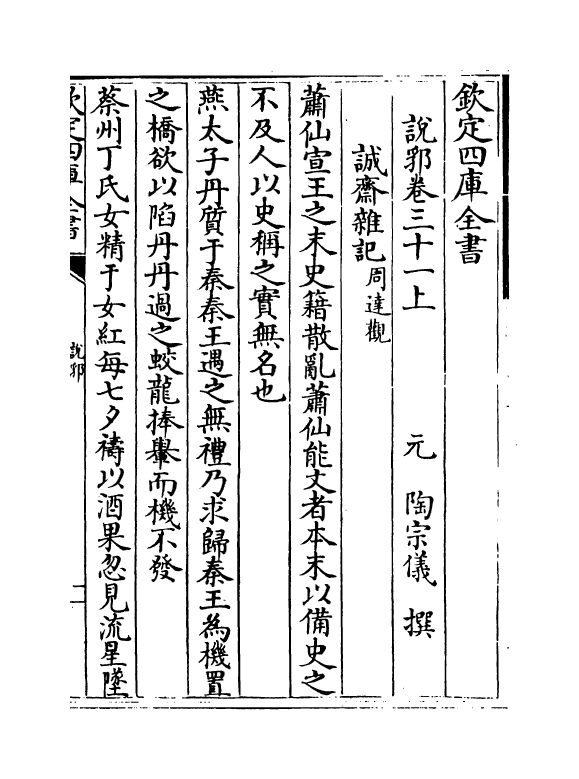 欽定四庫全書
說郛卷三十一上　元　陶宗儀　撰
誠齋雜記周達觀
蕭仙宣王之末史籍散亂蕭仙能文者本末以備史之
不及人以史稱之實無名也
燕太子丹質于秦秦王遇之無禮乃求歸秦王為機置
之橋欲以陷丹丹過之蛟龍捧轝而機不發
蔡州丁氏女精于女紅每七夕禱以酒果忽見流星墜
欽定四庫全書
說郛
二